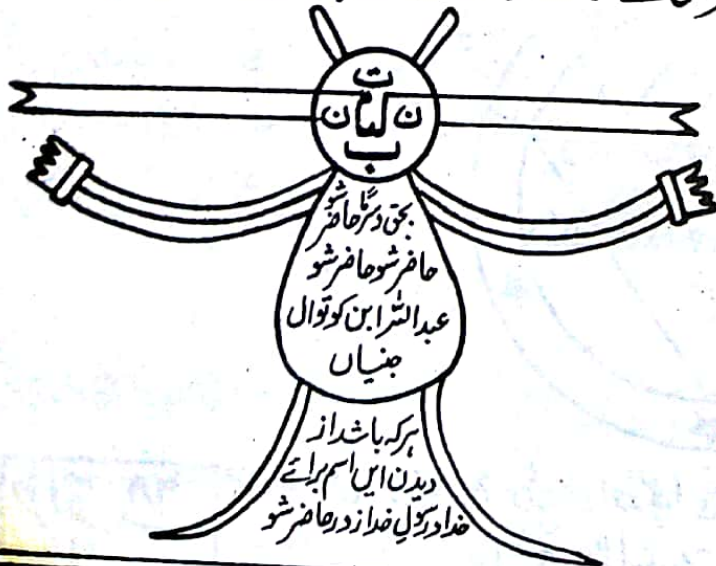 ت
ن لتا ن
ب
بحق دسرگا حاضر شو
حاضر شو حاضر شو
عبداللہ ابن کوتوال
جنیاں
ہرکہ باشد از
دیدن ایں اسم برائے
خدا و رسول خدا زود حاضر شو